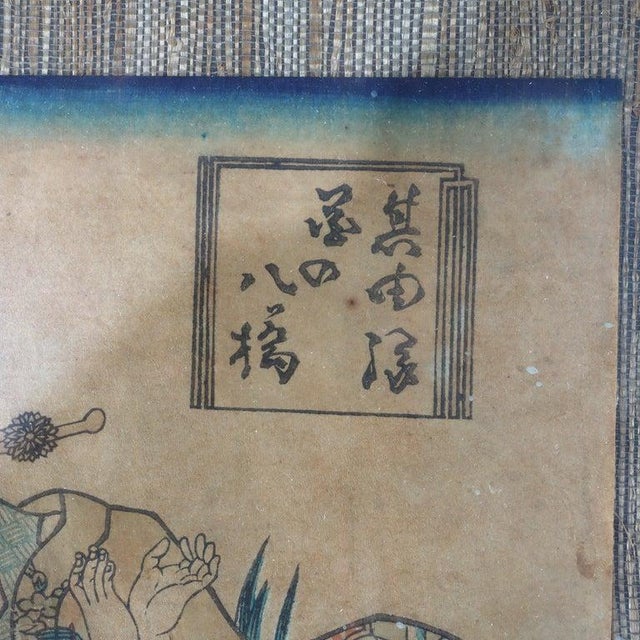 其由縁
の
八橋